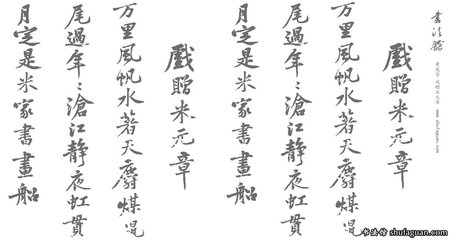 戲贈米元章
万里風帆水著天麝煤鼠
尾過年〻滄江靜夜虹貫
月定是米家書畫船
戲贈米元章
万里風帆水著天麝煤鼠
尾過年〻滄江靜夜虹貫
月定是米家書畫船
shufaguan.com